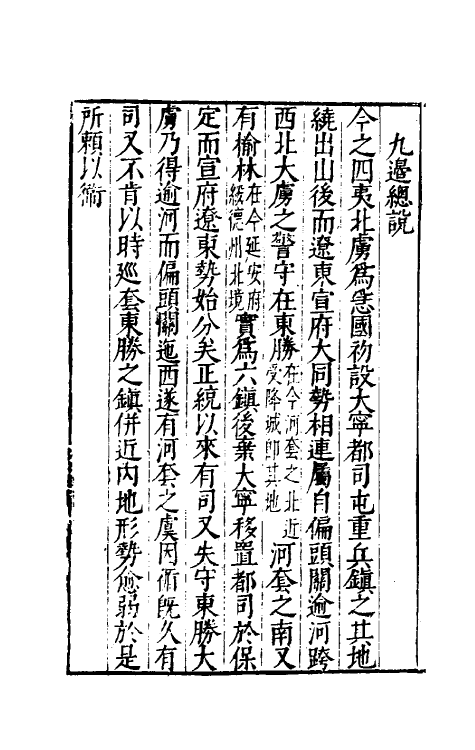 九邊總説
今之四夷北虜爲急國初設大寧都司屯重兵鎮之其地
繞出山後而遼東宣府大同勢相連屬自偏頭關逾河跨
西北大虜之警守在東勝在今河套之北近受降城即其地河套之南又
有榆林在今延安府綏德州北境實爲六鎮後棄大寧移置都司於保
定而宣府遼東勢始分矣正統以來有司又失守東勝大
虜乃得逾河而偏頭關迤西遂有河套之虞因循既久有
司又不肯以時巡套東勝之鎮併近内地形勢愈弱於是
所頼以衛